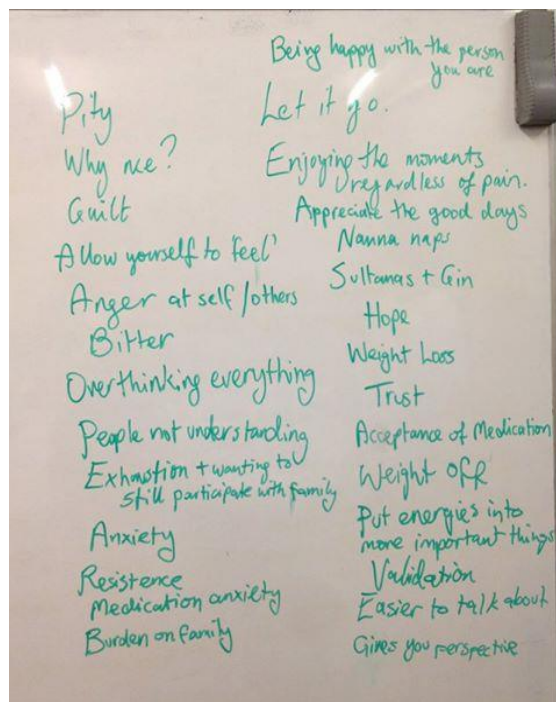 Pity
Why me?
Guilt
Allow yourself to 'feel'
Anger at self/others
Bitter
Overthinking everything
People not understanding
Exhaustion + wanting to
still participate with family
Anxiety
Resistence
Medication anxiety
Burden on family
Being happy with the person
you are
Let it go.
Enjoying the moments
regardless of pain.
Appreciate the good days
Nanna naps
Sultanas + Gin
Hope
Weight Loss
Trust
Acceptance of Medication
Weight off
Put energies into
more important things
Validation
Easier to talk about
Gives you perspective